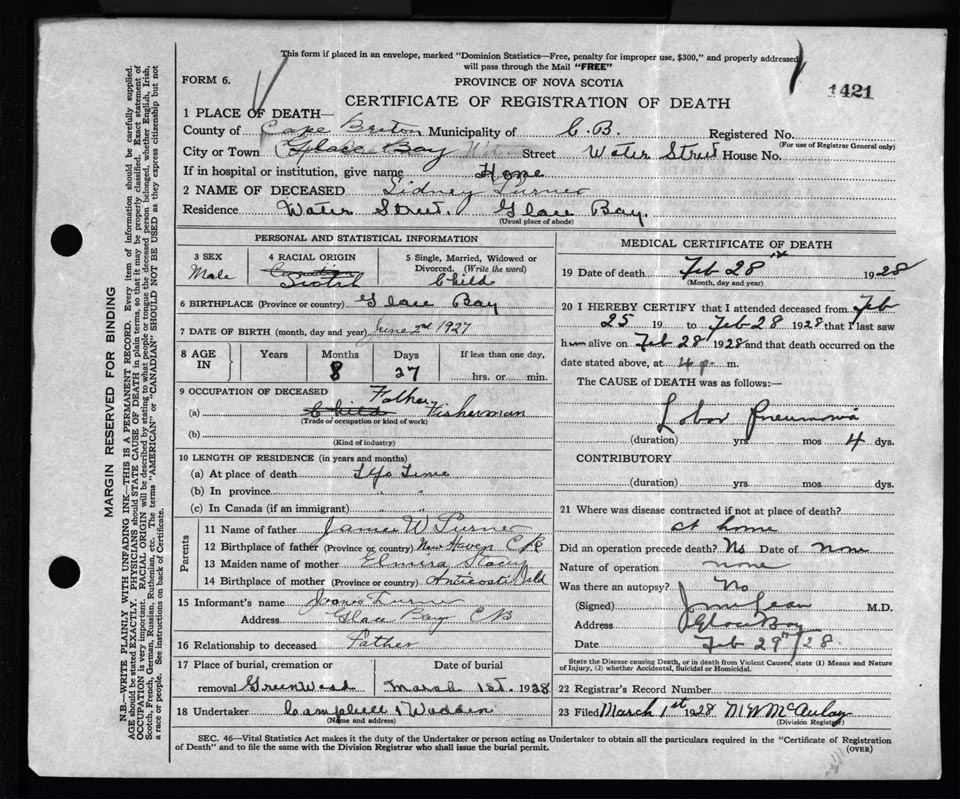 This form if placed in an envelope, marked "Dominion Statistics—Free, penalty for improper use, $300," and properly addressed
will pass through the Mail "FREE"
FORM 6.
PROVINCE OF NOVA SCOTIA
1421
CERTIFICATE OF REGISTRATION OF DEATH
1 PLACE OF DEATH—
County of Cape Breton Municipality of C.B. Registered No.
(For use of Registrar General only)
City or Town Glace Bay Street Water Street House No.
If in hospital or institution, give name Home
2 NAME OF DECEASED Sidney Turner
Residence Water Street. Glace Bay.
(Usual place of abode)
PERSONAL AND STATISTICAL INFORMATION
3 SEX Male
4 RACIAL ORIGIN Scotch
5 Single, Married, Widowed or Divorced. (Write the word) Child
6 BIRTHPLACE (Province or country) Glace Bay
7 DATE OF BIRTH (month, day and year) June 2nd 1927
8 AGE IN Years Months Days If less than one day,
8 27 hrs. or min.
9 OCCUPATION OF DECEASED Father
(a) Child Fisherman
(Trade or occupation or kind of work)
(b)
(Kind of industry)
10 LENGTH OF RESIDENCE (in years and months)
(a) At place of death Life Time
(b) In province " "
(c) In Canada (if an immigrant) " "
Parents
11 Name of father James W Turner
12 Birthplace of father (Province or country) New Haven C B
13 Maiden name of mother Elmira Stacey
14 Birthplace of mother (Province or country) Anticosti Isld
15 Informant's name James Turner
Address Glace Bay CB
16 Relationship to deceased Father
17 Place of burial, cremation or removal Greenwood
Date of burial March 1st. 1928
18 Undertaker Campbell & Wadden
(Name and address)
MEDICAL CERTIFICATE OF DEATH
19 Date of death Feb 28 1928
(Month, day and year)
20 I HEREBY CERTIFY that I attended deceased from Feb
25 19 to Feb 28 1928 that I last saw
him alive on Feb 28 1928 and that death occurred on the
date stated above, at 4 p. m.
The CAUSE OF DEATH was as follows:—
Lobar Pneumonia
(duration) yrs mos 4 dys.
CONTRIBUTORY
(duration) yrs. mos. dys.
21 Where was disease contracted if not at place of death?
at home
Did an operation precede death? No Date of none
Nature of operation none
Was there an autopsy? No
(Signed) M.D.
Address Glace Bay
Date Feb 29th/28
State the Disease causing Death, or in death from Violent Causes, state (1) Means and Nature
of Injury, (2) whether Accidental, Suicidal or Homicidal.
22 Registrar's Record Number
23 Filed March 1st 1928 McAulay
(Division Registrar)
SEC. 46—Vital Statistics Act makes it the duty of the Undertaker or person acting as Undertaker to obtain all the particulars required in the "Certificate of Registration
of Death" and to file the same with the Division Registrar who shall issue the burial permit.
(OVER)
MARGIN RESERVED FOR BINDING
N.B.—WRITE PLAINLY WITH UNFADING INK—THIS IS A PERMANENT RECORD. Every item of information should be carefully supplied.
AGE should be stated EXACTLY. PHYSICIANS should STATE CAUSE OF DEATH in plain terms, so that it may be properly classified. Exact statement of
OCCUPATION is very important. RACIAL ORIGIN will be described by stating to what people or tongue the deceased person belonged, whether English, Irish,
Scotch, French, German, Russian, Ruthenian, etc. The terms "AMERICAN" or "CANADIAN" SHOULD NOT BE USED as they express citizenship but not
a race or people. See instructions on back of Certificate.